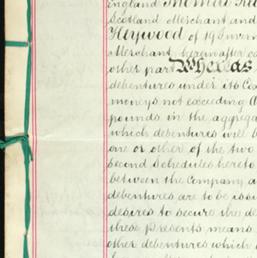 England Thomas
Scotland Merchant and
Heywood of
Merchant hereinafter
other part Whereas
debentures under its Co
moneys not exceeding
pounds in the aggrega
which debentures will b
one or other of the two
Second Schedules hereto
between the Company a
debentures are to be issu
desires to secure the de
these presents means
other debentures which